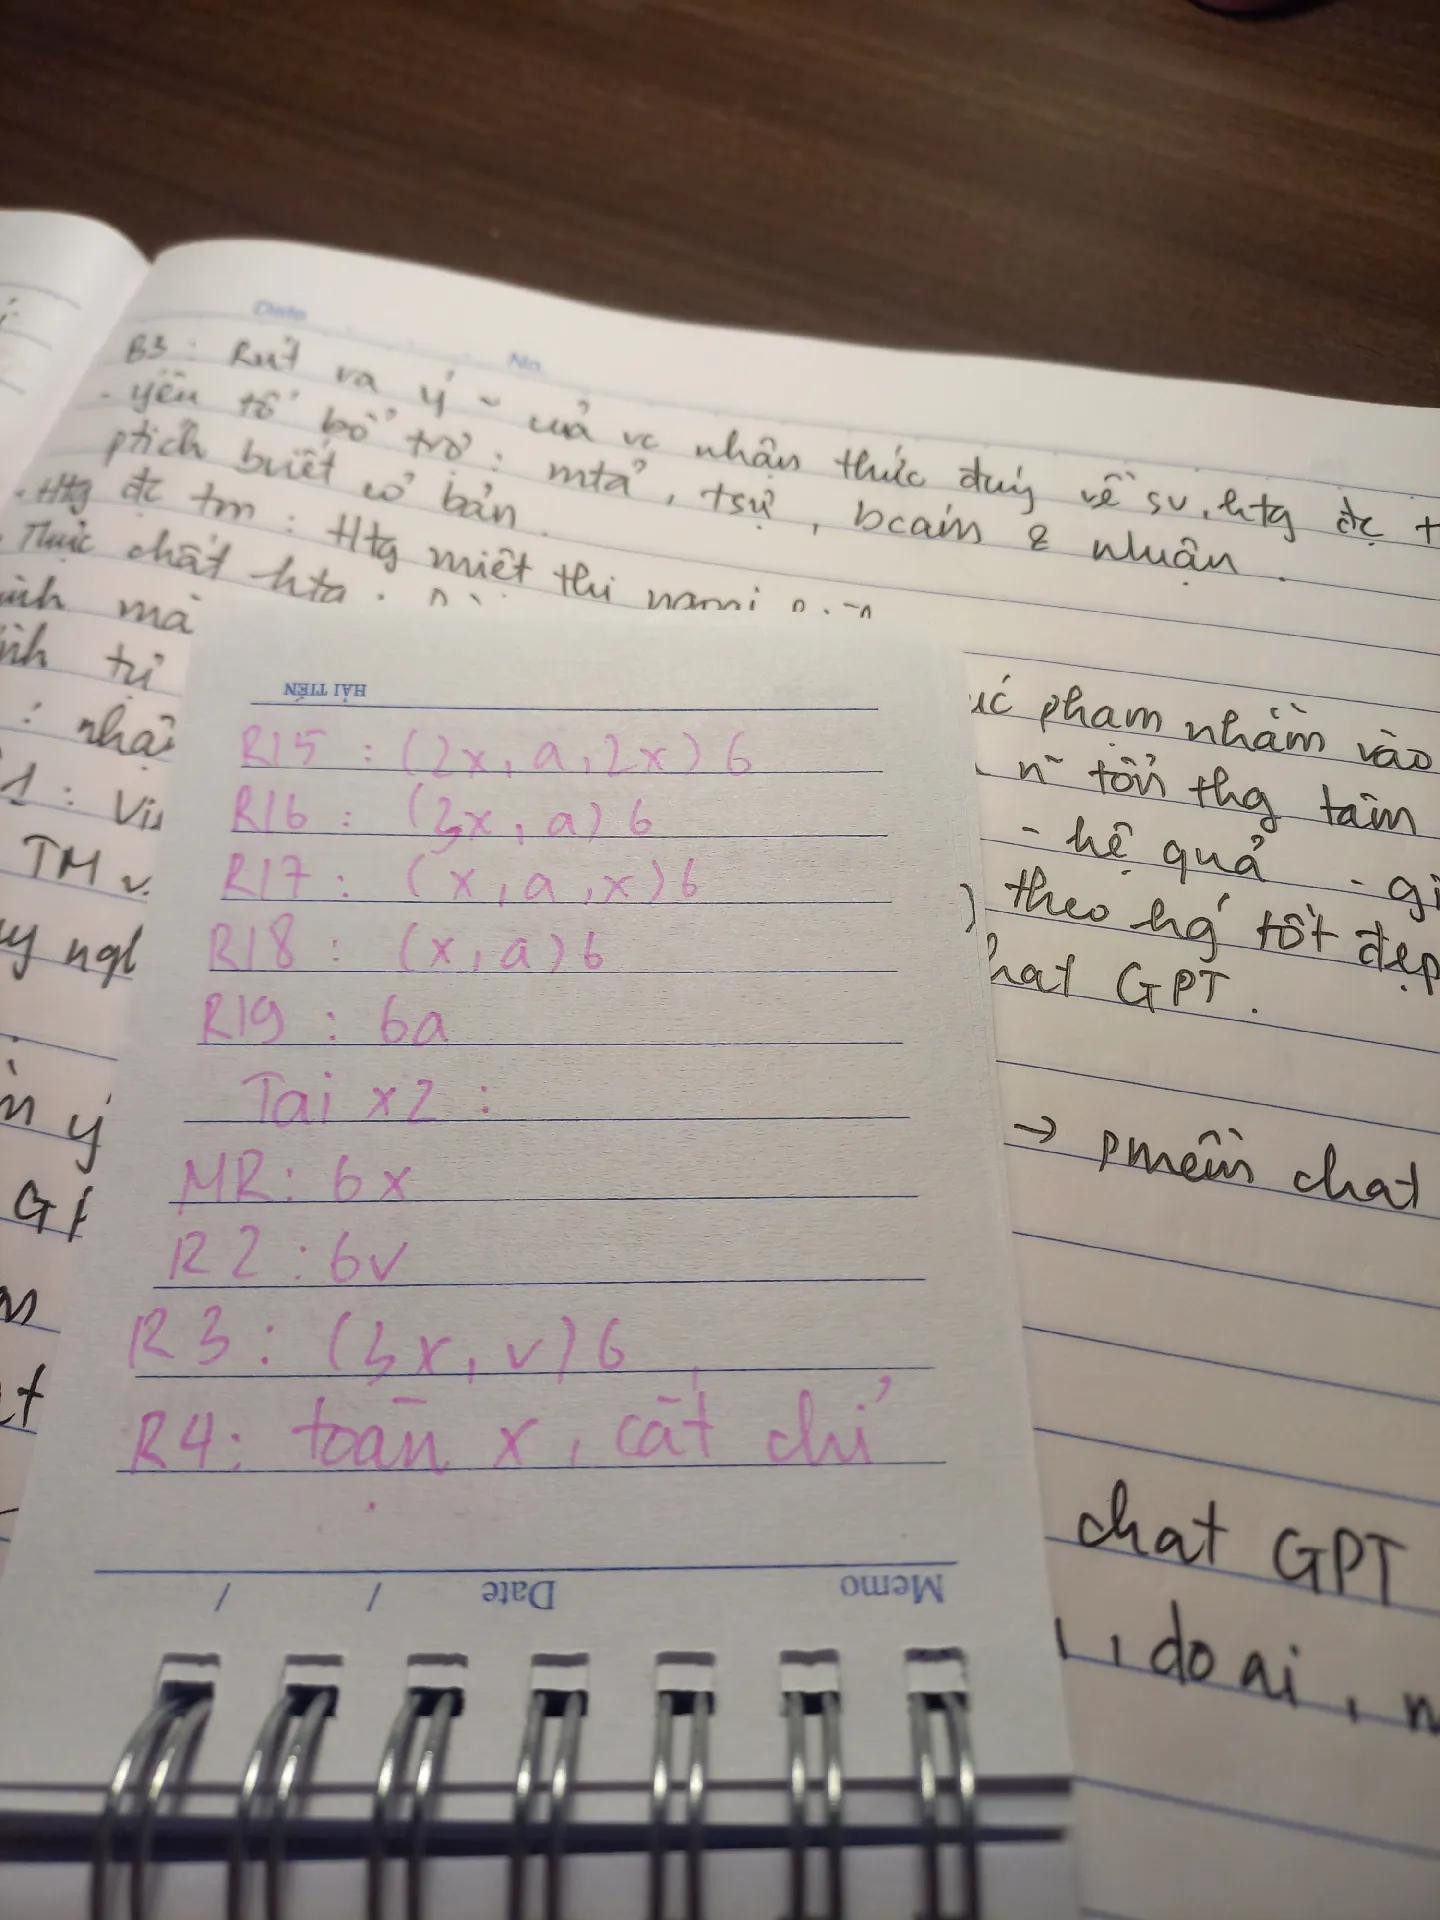 Date
No.
B3: Rút ra ý ~ của vc nhận thức đúng về sv, htg đc
- yếu tố bổ trợ: mtả, tsự, bcảm & nluận.
ptích
- Htg đc tm: Htg miệt thị
Thực chất htg
HẢI TIẾN
R15: (2x, a, 2x) 6
R16: (3x, a) 6
R17: (x, a, x) 6
R18: (x, a) 6
R19: 6a
Tai x2:
MR: 6x
R2: 6v
R3: (3x, v) 6
R4: toàn x, cắt chỉ
Memo Date / /
mà
: nhậ
TM
phạm nhằm vào
tổn thg tâm
- hệ quả
theo hg tốt đẹp
hat GPT.
→ pmềm chat
chat GPT
, do ai,